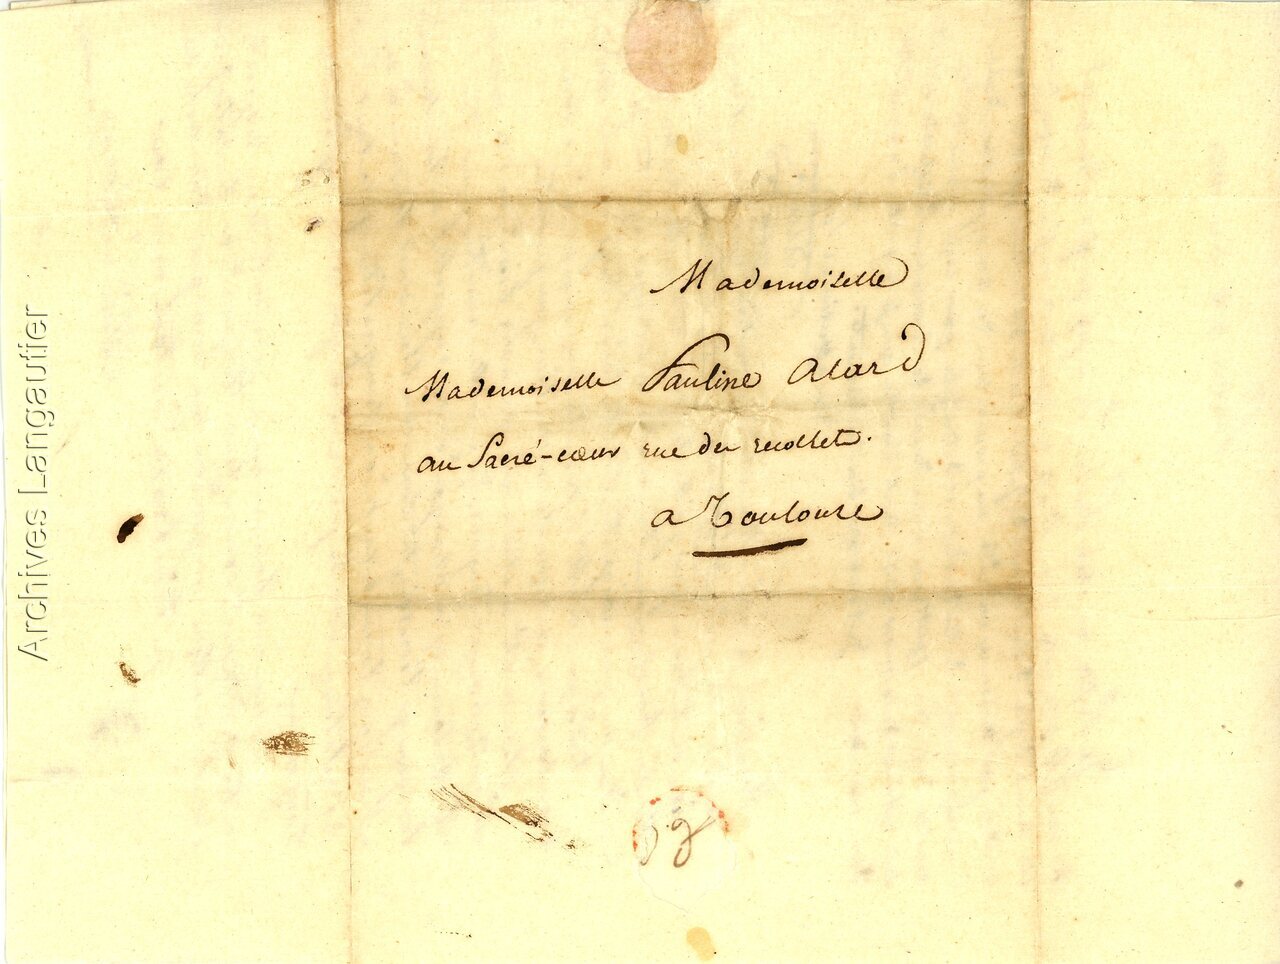 Mademoiselle
Mademoiselle Pauline Alard
au Sacré-cœur rue des recollets.
a Toulouse
Archives Langautier